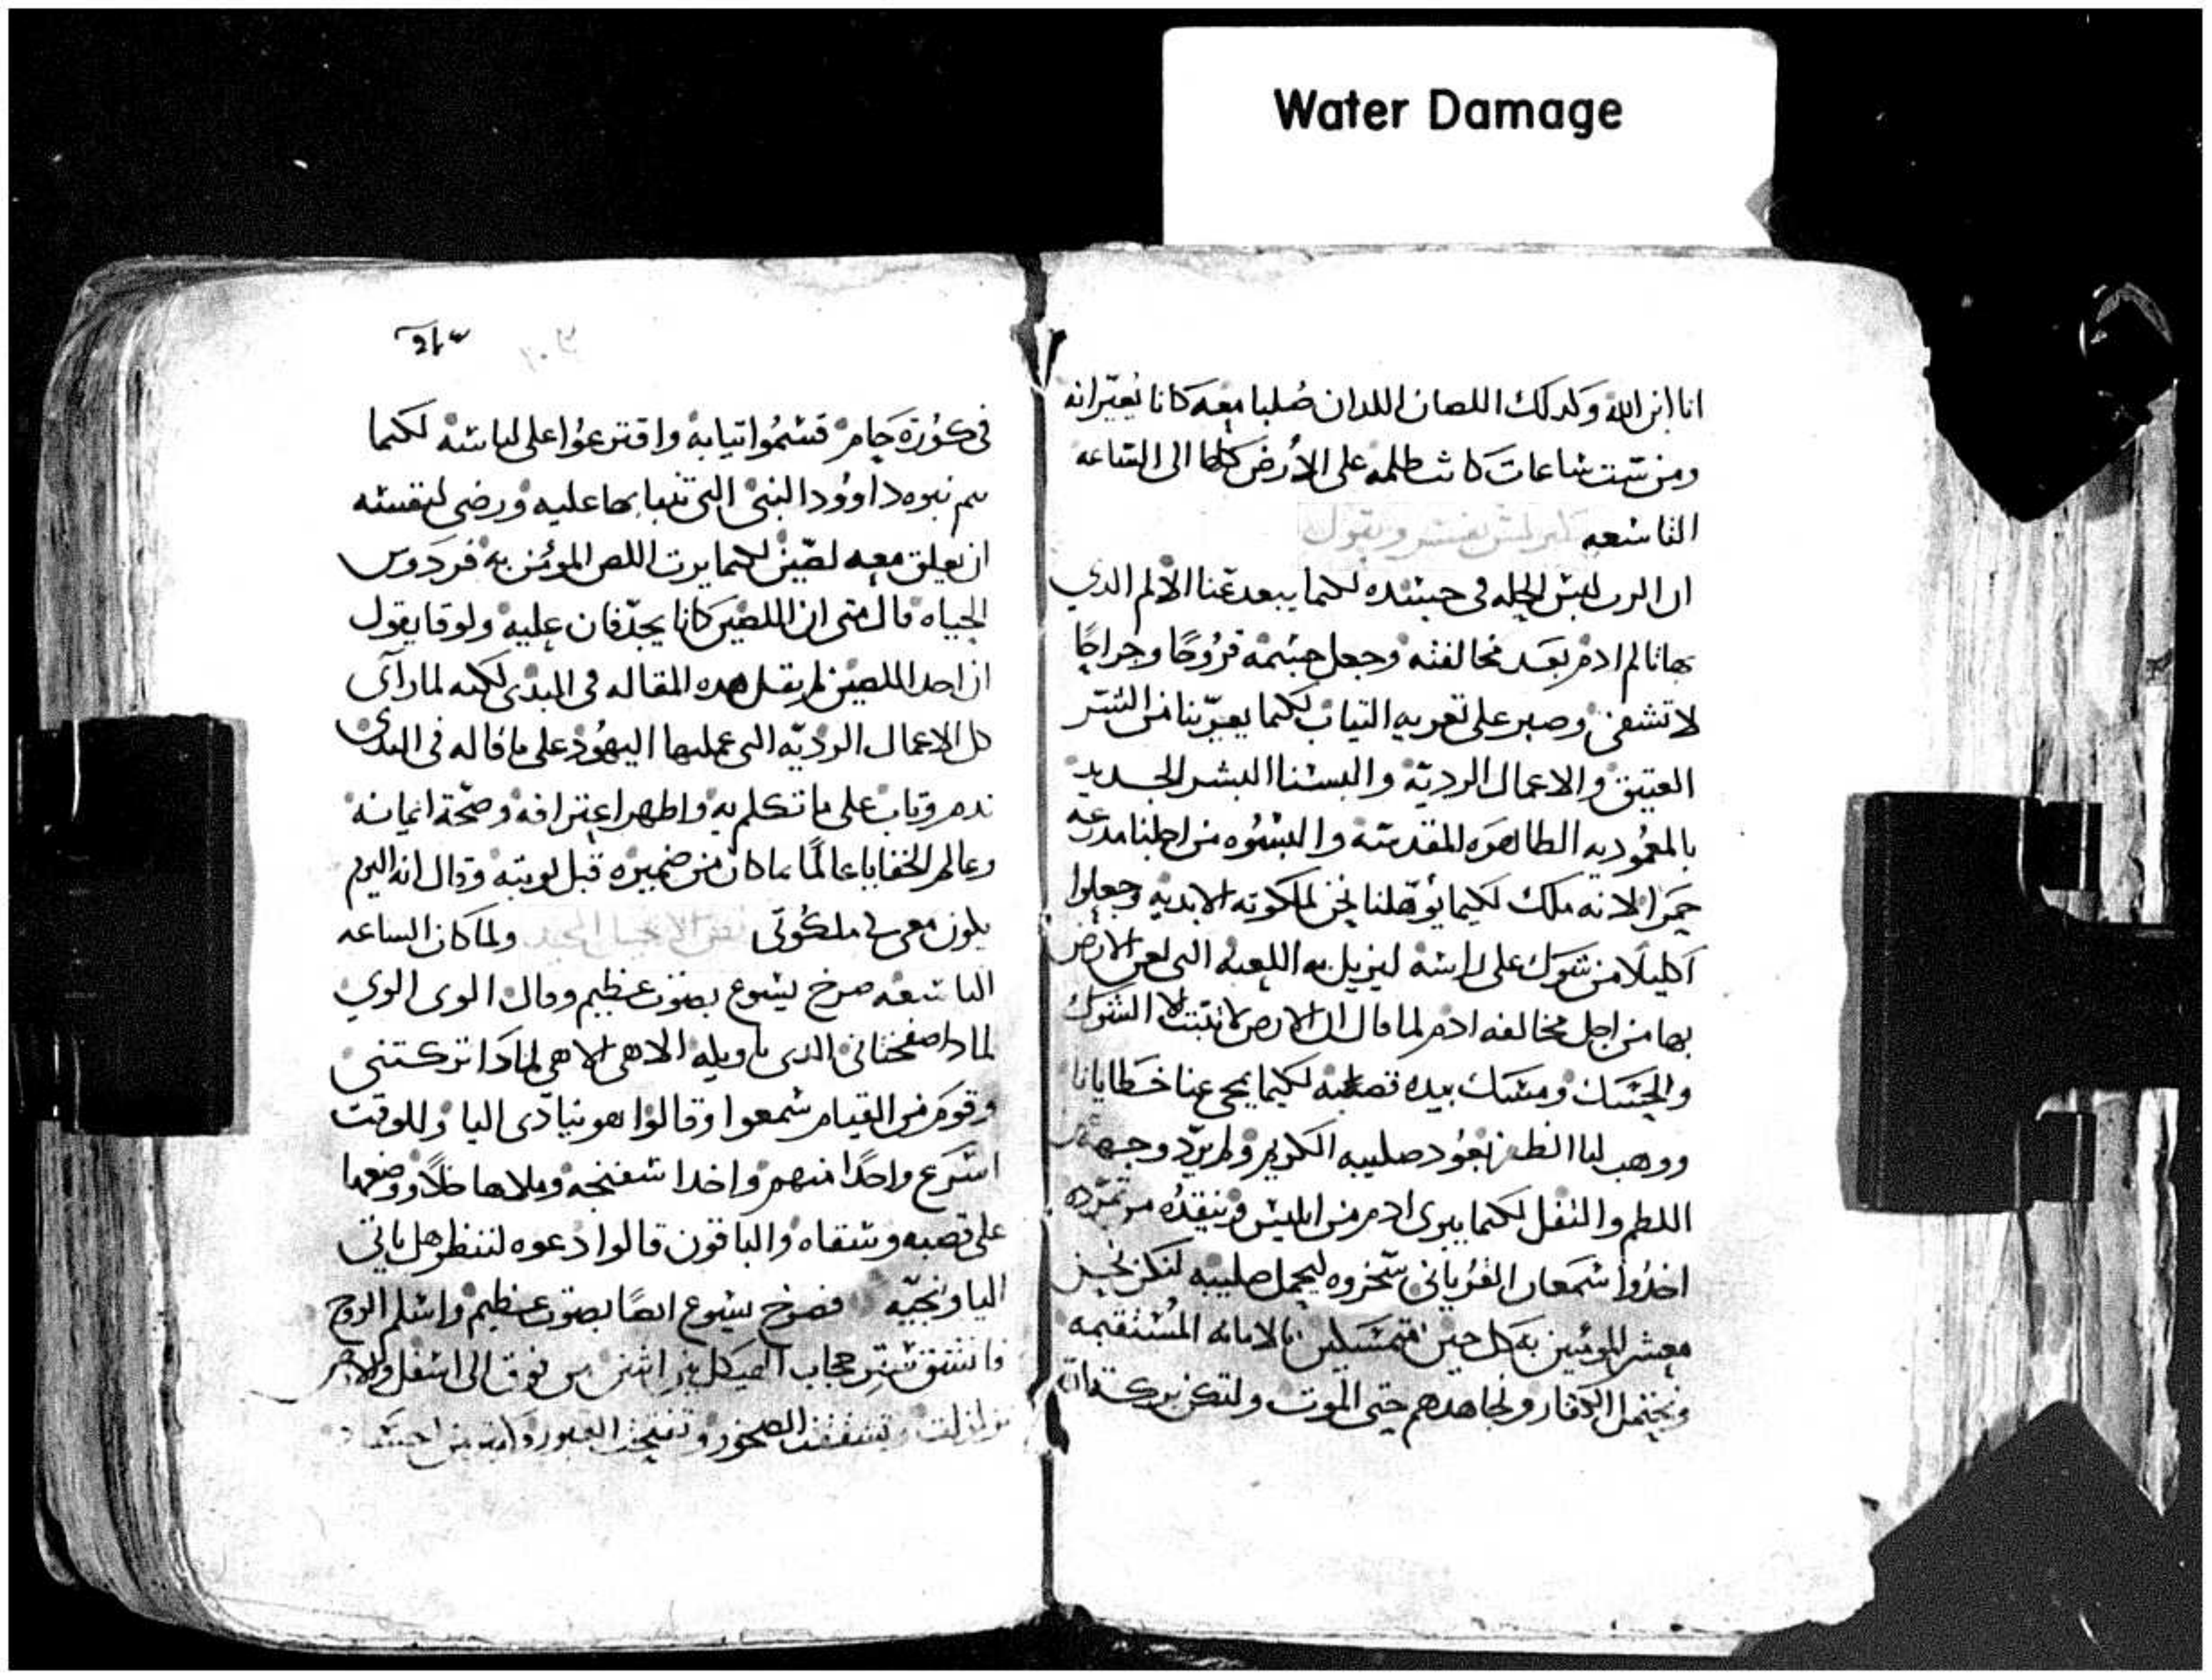 Water Damage
انا ابن الله وكدلك اللصان اللدان صُلبا معه كانا يُعيّرانه
ومن ستت ساعات كانت ظلمه على الأرض كلها الى الساعه
التاسعه كيرلس يفسر ويقول
ان الرب لبس الحله فى جسده لكيما يبعد عنا الألم الدي
بها تالم ادم بعد مخالفته وجعل جسمه قرُوحًا وجراحًا
لا تشفى وصبر على تعريه التياب لكيما يعرّينا من الستر
العتيق والاعمال الرديّه والبسنا البشر الجديد
بالمعمُوديه الطاهره المقدسه والبسُوه من اجلنا مدرعه
حمرا لانه ملك لكيما يُوهّلنا نحن لملكوته الابديه وجعلوا
اكليلًا من شوك على راسه ليزيل به اللعنه التى لعن الارض
بها من اجل مخالفه ادم لما قال ان الارض لا تنبت الا الشوك
والحسك ومسك بيده قصبه لكيما يمحى عنا خطايانا
ووهب لنا الظفر بعُود صليبه الكريم ولم يردّ وجهه من
اللطم والتفل لكيما يبرى ادم من ابليس وينقدُه من تمرّده
اخدُوا سمعان القُريانى سخروه ليحمل صليبه لنكن نحن
معشر المومنين به كل حين متمسكين بالامانه المُستقيمه
ونحتمل الكفار ونجاهدهم حتى الموت ولتكن بركة
في كُورة حام قسمُوا تيابه واقترعُوا على لباسه لكيما
يتم نبوه داوُود النبى التى تنبا بها عليه ورضى لنفسه
ان يعلق معه لصّين لكيما يرت اللص المومن به فردوس
الحياه قال متى ان اللصين كانا يجدّفان عليه ولوقا يقول
ان احد اللصين لم يقل هده المقاله فى البدى لكنه لما رآى
كل الاعمال الرديّه التى عملها اليهُود على ما قاله فى البدى
ندم وتاب على ما تكلم به واظهر اعترافه وصحّة ايمانه
وعالم الخفايا عالمًا بما كان من ضميره قبل توبته وقال انه اليوم
يكون معى فى ملكُوتى نص الانجيل المجيد ولما كان الساعه
التاسعه صرخ يسوع بصوت عظيم وقال الوى الوي
لمادا صفختانى الدى تاويله الاهى الاهى لمادا تركتنى
وقوم من القيام سمعوا وقالوا هو ينادى اليا وللوقت
اسرع واحدًا منهم واخدا سفنجه وملاها خلًا ووضعها
على قصبه وسقاه والباقون قالوا دعوه لننظر هل ياتي
اليا ونجيّه فصرخ يسوع ايضًا بصوت عظيم واسلم الروح
وانشق ستر حجاب الهيكل من اثنين من فوق الى اسفل والارض
تزلزلت وتشققت الصخور وتفتحت القبور وكتير من اجساد